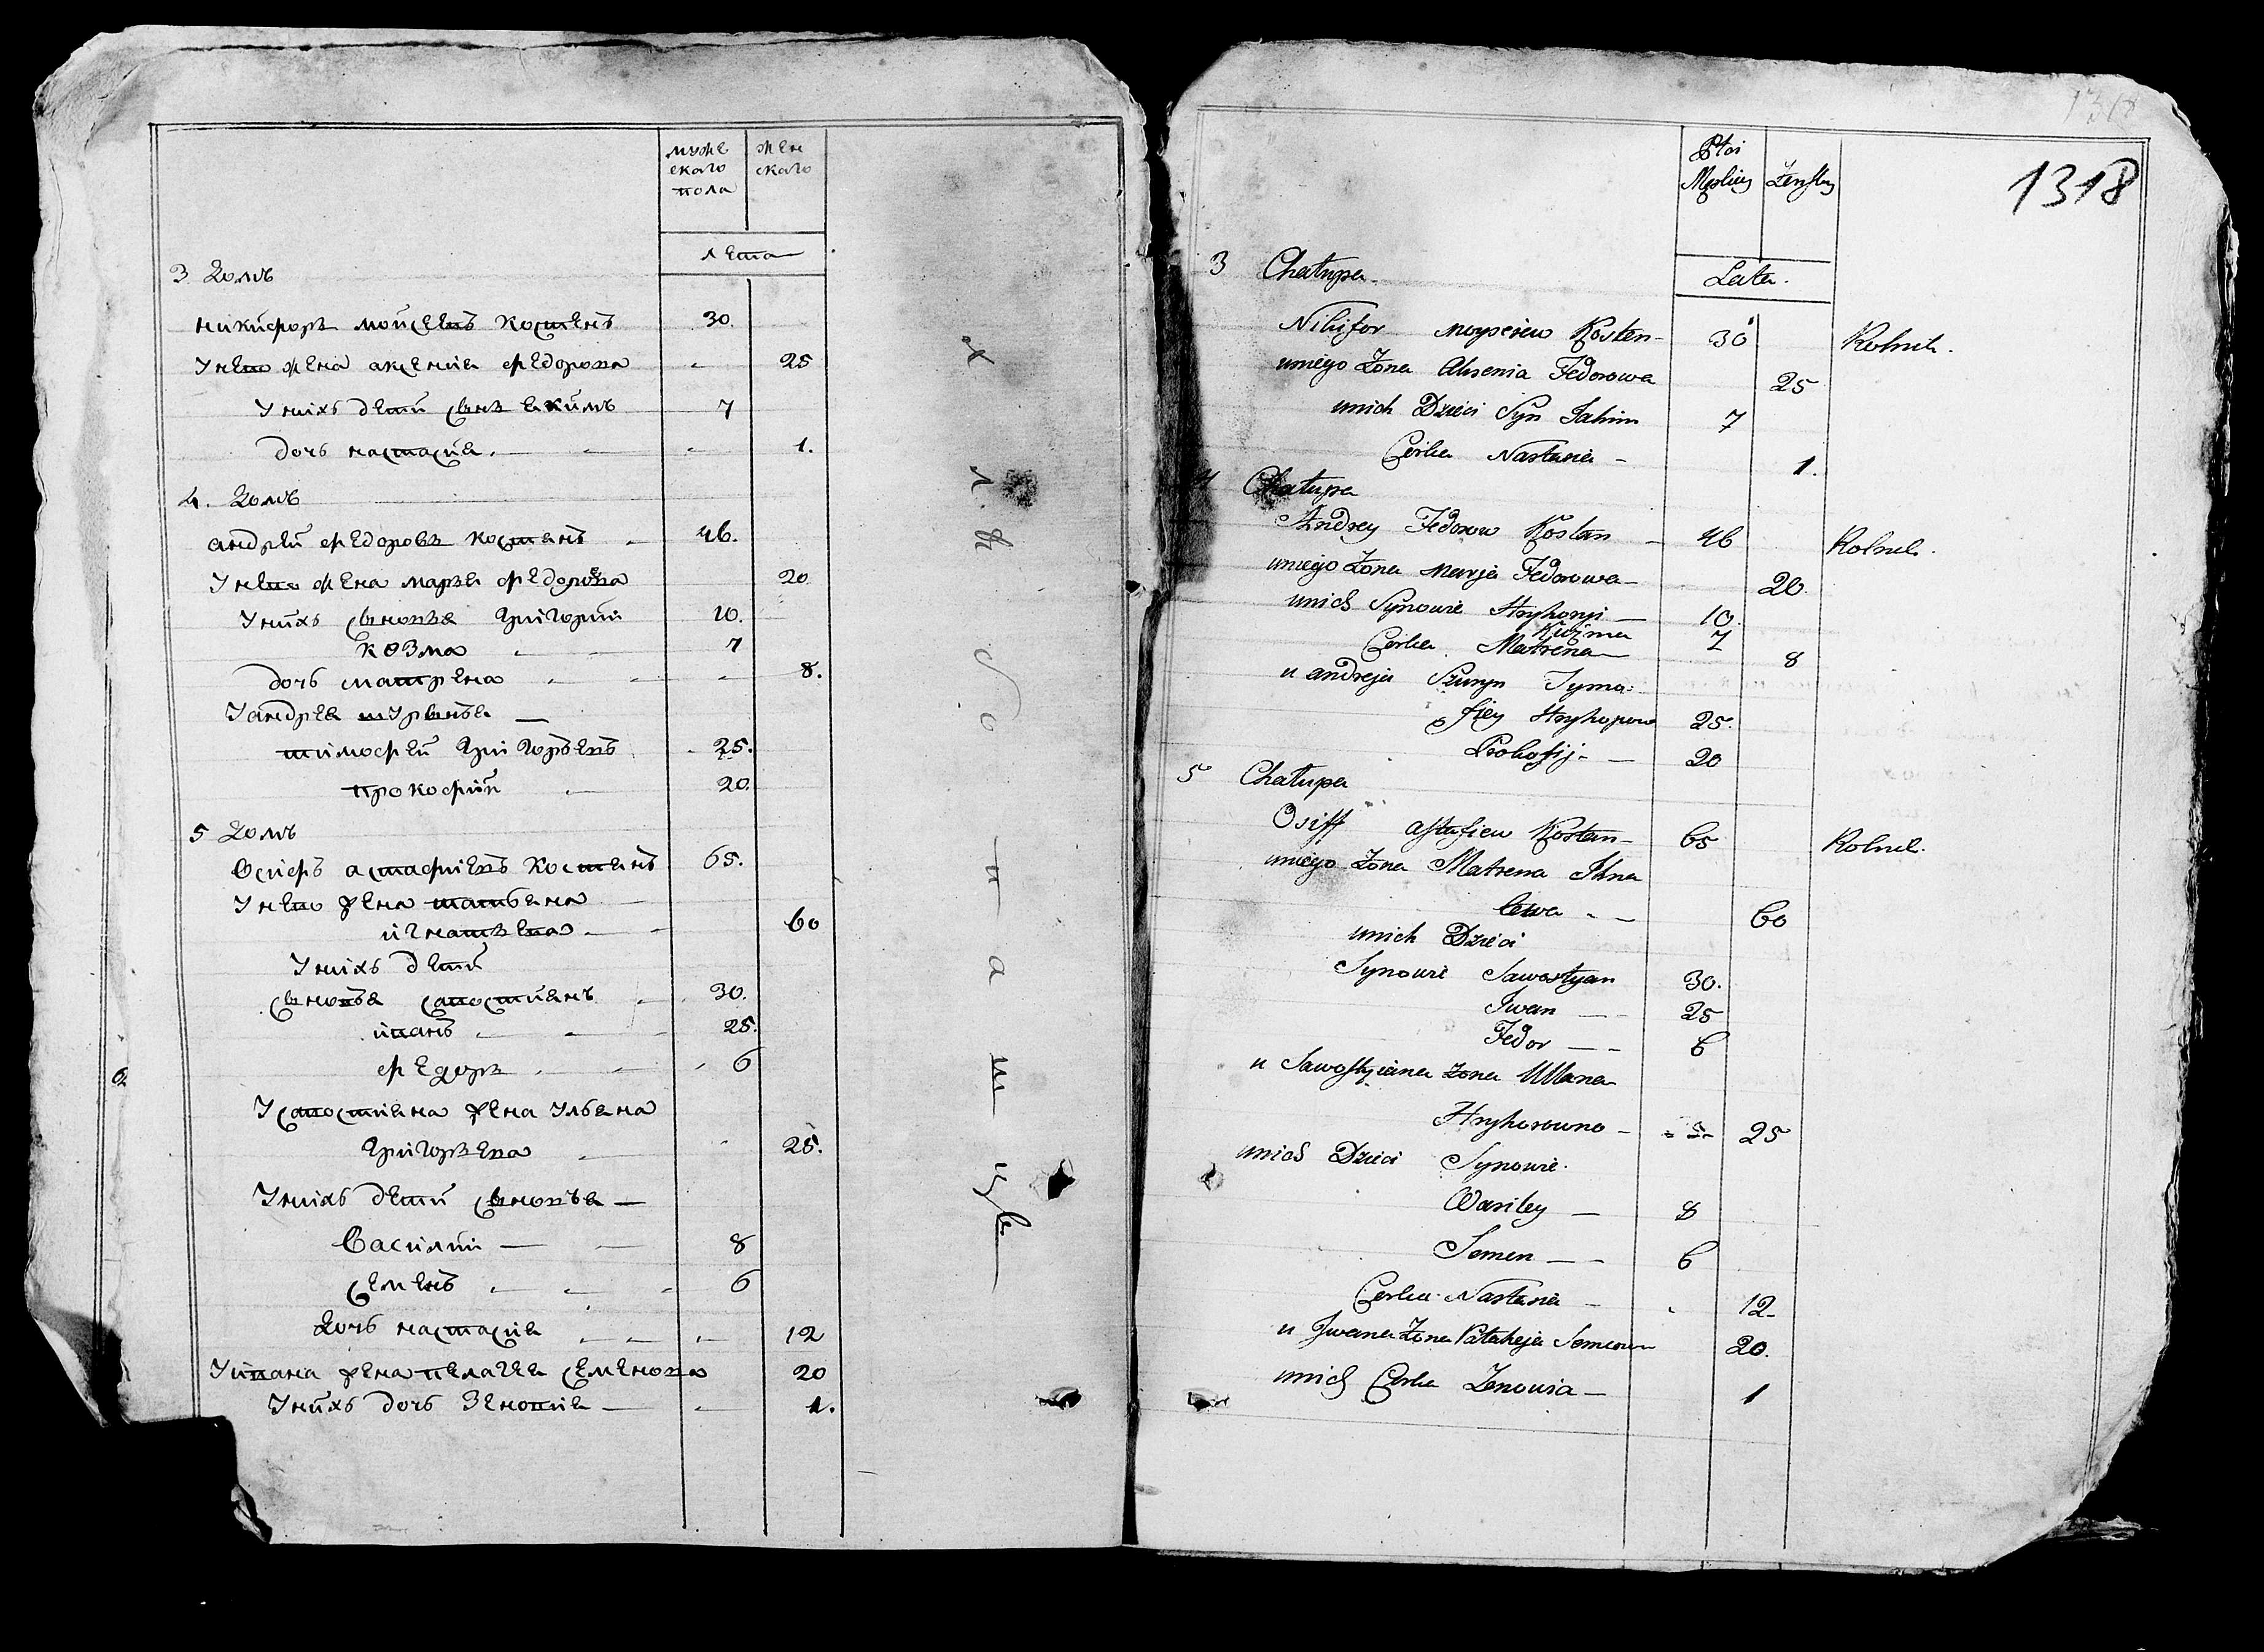 муже
скаго
пола
жен
скаго
лета
3 Домъ
никифоръ мойсеевъ костенъ 30.
У нево жена аксенія федорова 25
У нихъ дети сынъ екимъ 7
дочь настасия. 1.
4. Домъ
андрей федоровъ костенъ 46.
У нево жена марья федорова 20
У нихъ сыновья григорий 10.
козма 7
дочь матрена 8.
У андрея шурьенья
тимофей григорьевъ 25.
прокофий 20.
5 Домъ
Осифъ астафиевъ костенъ 65.
У нево жена
игнатьева 60
У нихъ дети
сыновья савостиянъ 30.
иванъ 25.
федоръ 6
У савостияна жена ульяна
григорьева 25.
У нихъ дети сыновья
Василий 8
семенъ 6
Дочь настасия 12
У ивана жена пелагея семенова 20
У нихъ дочь Зеновия 1.
1318
Płci
Męskiey Żenskey
Lata.
3 Chałupa
Nikifor Moyseiew Kosten 30 Rolnik.
uniego Żona Aksenia Fedorowa 25
unich Dzieci Syn Jakim 7
Corka Nastasia 1.
4 Chałupa
Andrey Fedorow Kostan 46 Rolnik.
uniego Żona Marja Fedorowa 20.
unich Synowie Hryhoryi 10.
Kuzma 7
Corka Matrena 8
u andreja Szuryn Tyma
fiey Hryhorow 25.
Prokofij 20
5 Chałupa
Osiff Astafiew Kostan 65 Rolnik.
uniego Żona Matrena Ihna
tewa 60
unich Dzieci
Synowie Sawostyan 30.
Iwan 25
Fedor 6
u Sawostyiana żona Ullana
Hryhorowna 25
unich Dzieci Synowie.
Wasiley 8
Semen 6
Corka Nastasia 12
u Iwana Żona Pałaheja Semeown 20.
unich Corka Zenowia 1